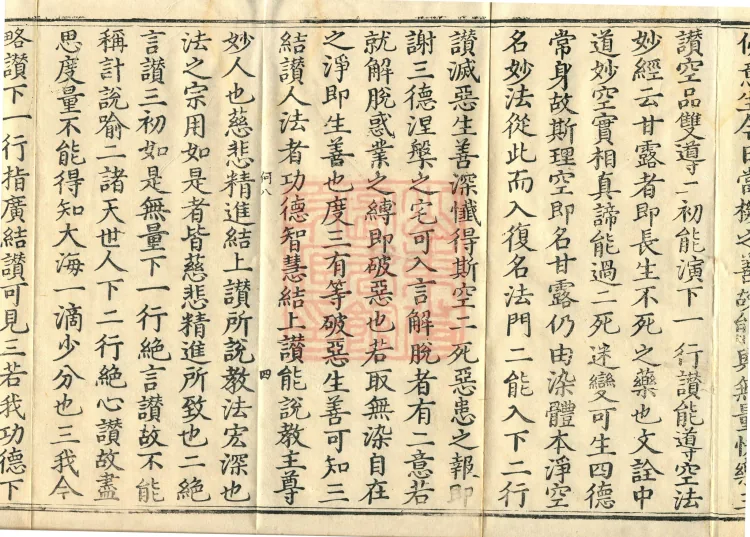 意生今日當機之善故能與無量快樂三
讚空品雙導二初能演下一行讚能導空法
妙經云甘露者即長生不死之藥也文詮中
道妙空實相真諦能過二死迷變可生四德
常身故斯理空即名甘露仍由染體本淨空
名妙法從此而入復名法門二能入下二行
讚滅惡生善深懺得斯空二死惡患之報即
謝三德涅槃之宅可入言解脫者有二意若
就解脫惑業之縛即破惡也若取無染自在
之淨即生善也度三有等破惡生善可知三
結讚人法者功德智慧結上讚能說教主尊
何八 四
妙人也慈悲精進結上讚所說教法宏深也
法之宗用如是者皆慈悲精進所致也二絕
言讚三初如是無量下一行絕言讚故不能
稱計說喻二諸天世人下二行絕心讚故盡
思度量不能得知大海一滴少分也三我今
略讚下一行指廣結讚可見三若我功德下